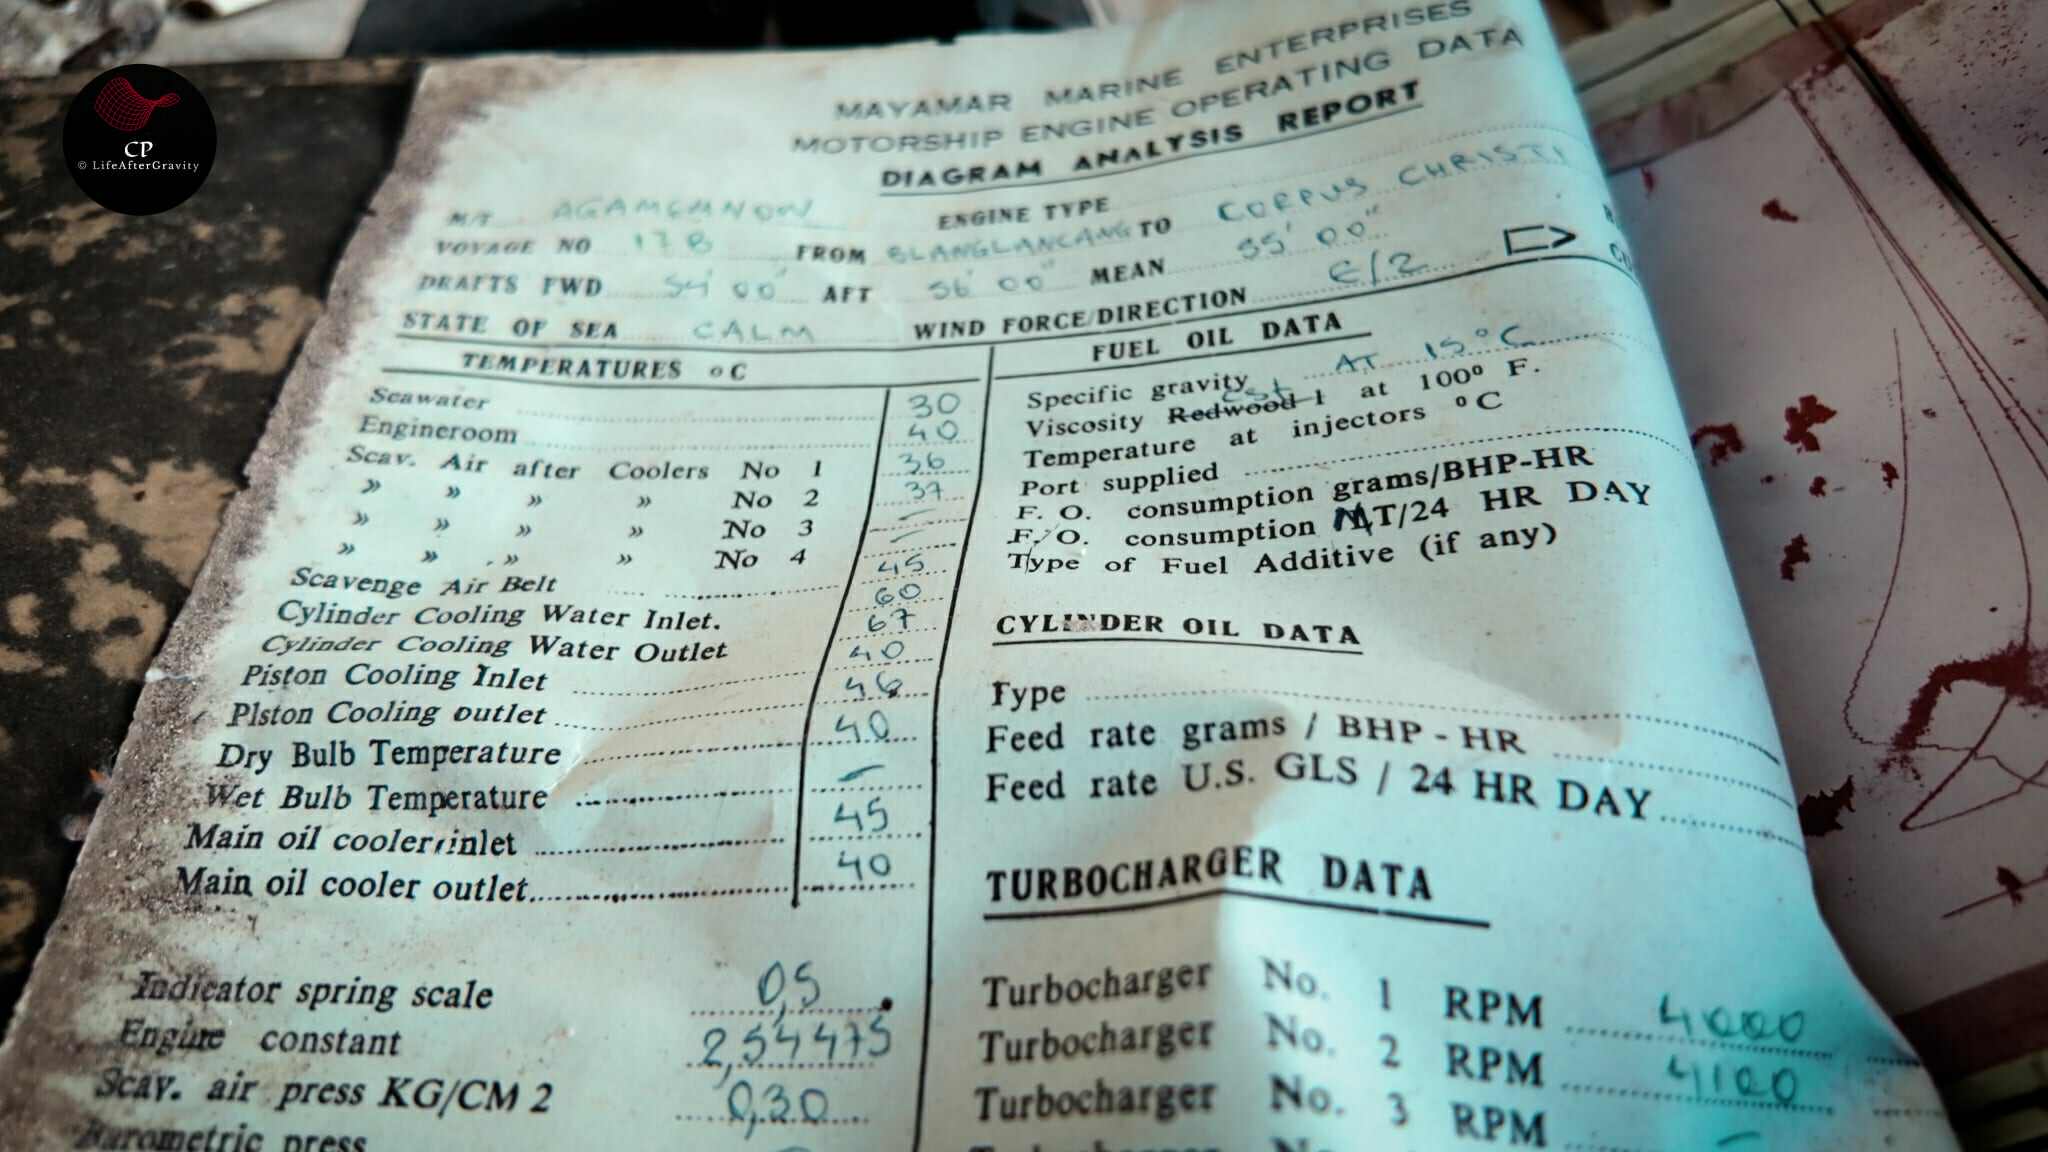 CP
© LifeAfterGravity
MAYAMAR MARINE ENTERPRISES
MOTORSHIP ENGINE OPERATING DATA
DIAGRAM ANALYSIS REPORT
M/T AGAMEMNON ENGINE TYPE
VOYAGE NO 17B FROM BLANGLANCANG TO CORPUS CHRISTI
DRAFTS FWD 54' 00" AFT 56' 00" MEAN 55' 00"
STATE OF SEA CALM WIND FORCE/DIRECTION E/2
TEMPERATURES °C
Seawater 30
Engineroom 40
Scav. Air after Coolers No 1 36
» » » » No 2 37
» » » » No 3 –
» » » » No 4 –
Scavenge Air Belt 45
Cylinder Cooling Water Inlet. 60
Cylinder Cooling Water Outlet 67
Piston Cooling Inlet 40
Plston Cooling outlet 46
Dry Bulb Temperature 40
Wet Bulb Temperature –
Main oil cooler inlet 45
Main oil cooler outlet 40
Indicator spring scale 0,5
Engine constant 2,54475
Scav. air press KG/CM 2 0,30
Barometric press
FUEL OIL DATA
Specific gravity AT 15°C
Viscosity Redwood 1 cst at 100° F.
Temperature at injectors °C
Port supplied
F. O. consumption grams/BHP-HR
F. O. consumption MT/24 HR DAY
Type of Fuel Additive (if any)
CYLINDER OIL DATA
Type
Feed rate grams / BHP - HR
Feed rate U.S. GLS / 24 HR DAY
TURBOCHARGER DATA
Turbocharger No. 1 RPM 4000
Turbocharger No. 2 RPM 4100
Turbocharger No. 3 RPM –